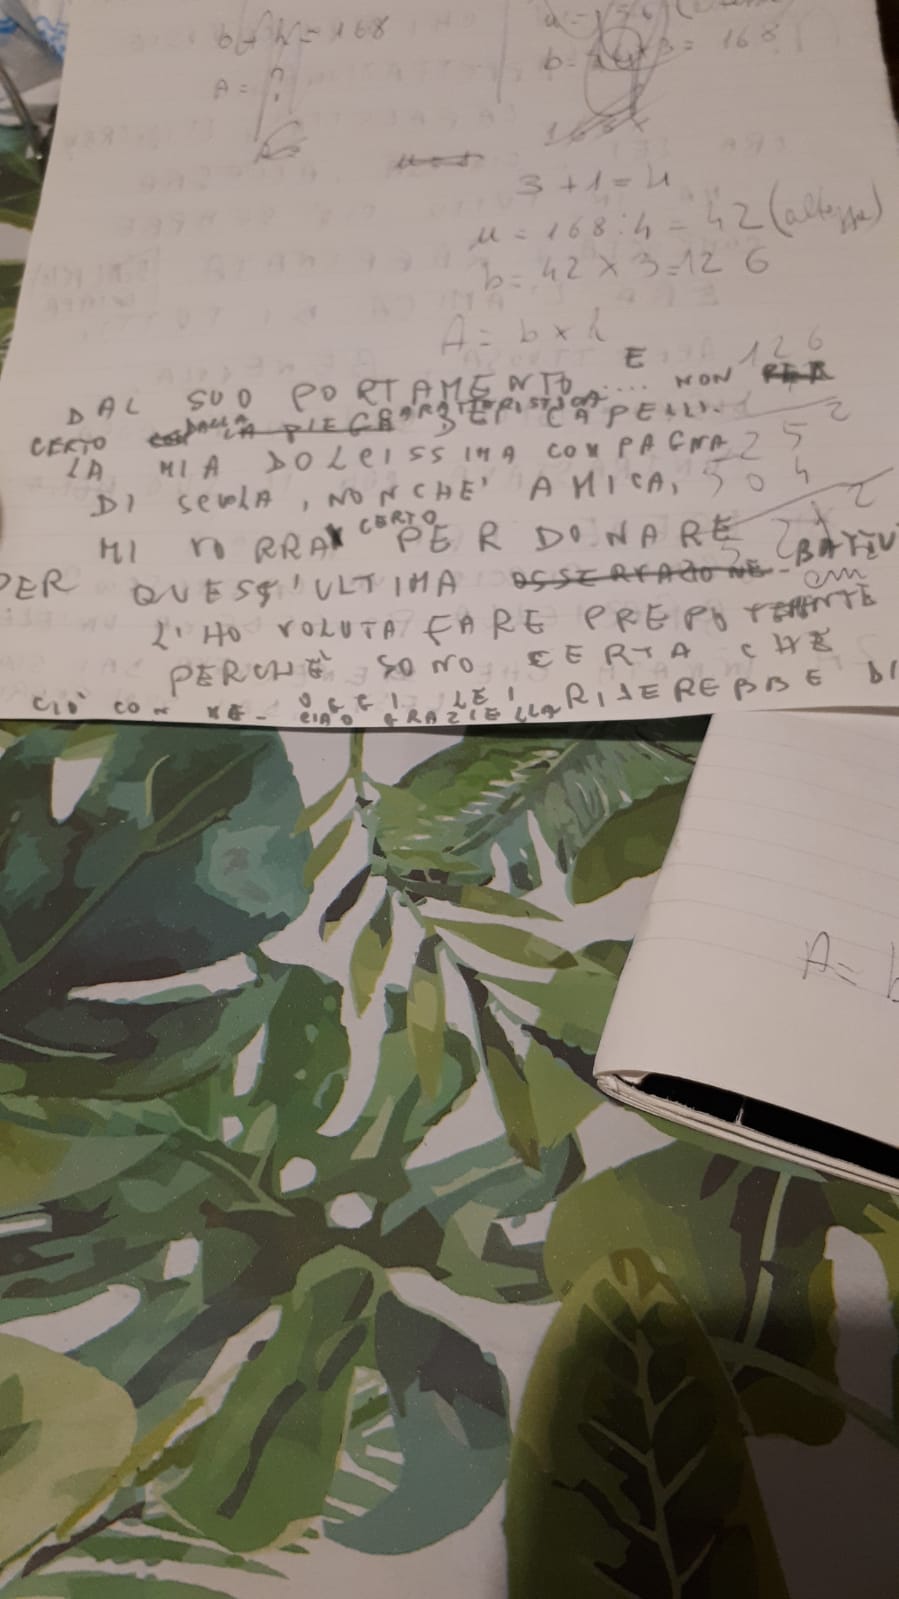 b + h = 168
b = 24 x 3 = 168
A = ?
3 + 1 = 4
u = 168 : 4 = 42 (altezza)
b = 42 x 3 = 126
A = b x h
126
DAL SUO PORTAMENTO .... E NON
CERTO DALLA CARATTERISTICA DEI CAPELLI.
LA MIA DOLCISSIMA COMPAGNA 252
DI SCUOLA, NONCHE' AMICA, 504
MI VORRA CERTO PERDONARE
PER QUEST'ULTIMA BATTU
L'HO VOLUTA FARE PREPOTENTE
PERCHÈ SONO CERTA CHE
CIÒ CON ME - OGGI LEI RIDEREBBE DI
CIAO GRAZIELLA
A = b